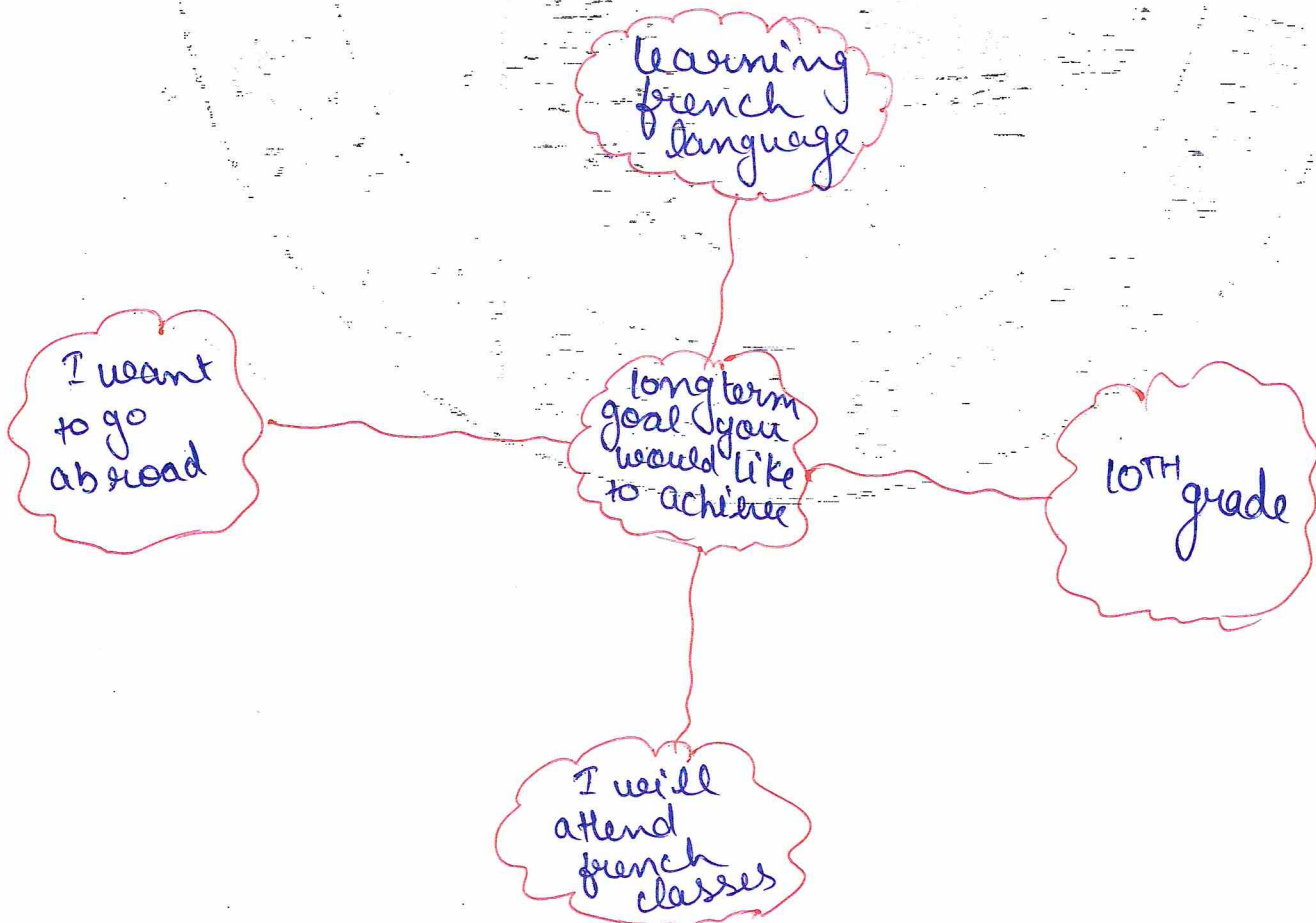 learning
french
language
I want
to go
abroad
long term
goal you
would like
to achieve
10TH grade
I will
attend
french
classes